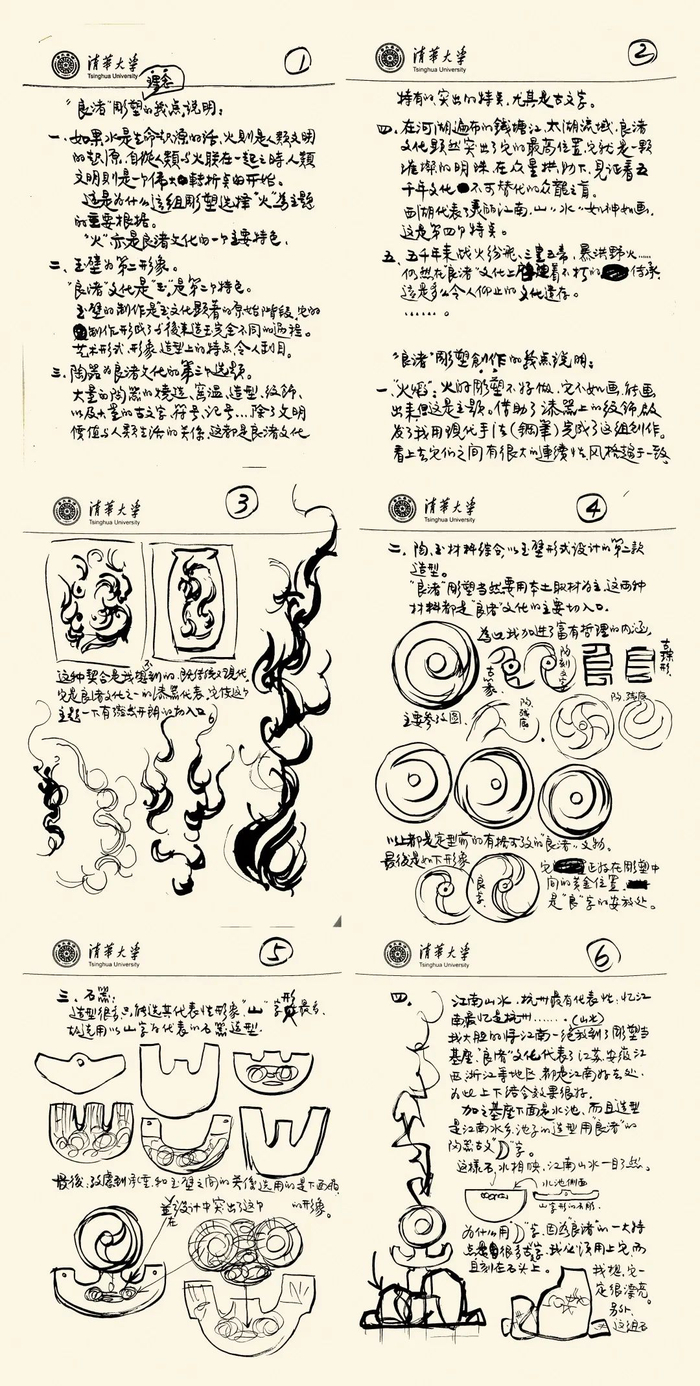 清华大学
Tsinghua University
①
理念
"良渚"雕塑的几点说明:
一、如果水是生命起源的话,火则是人类文明
的起源,自从人类与火联在一起之時人類
文明则是一个伟大的转折点的开始。
这是为什么这组雕塑选择"火"为主题
的重要根据。
"火"亦是良渚文化的一个主要特色。
二、玉璧为第二形象。
"良渚"文化是"玉"是第二个特色。
玉璧的制作是玉文化显著的原始阶段,它的
制作形成了与後来造玉完全不同的过程。
艺术形式、形象、造型上的特点,令人刮目。
三、陶器为良渚文化的第三个选题。
大量的陶器的烧造、窑温、造型、纹饰,
以及大量的古文字、符号、记号…除了文明
價值与人类生活的关係,这都是良渚文化
清华大学
Tsinghua University
②
特有的、突出的特点,尤其是古文字。
四、在河湖遍布的錢塘江、太湖流域,良渚
文化显然突出了它的最高位置,它就是一颗
璀璨的明珠,在众星拱助下,见证着五
千年文化不可替代的
西湖代表了美丽的江南,山"水"如诗如画,
这是第四个特点。
五、五千年来战火纷飛、三皇五帝、暴洪野火……
仍然在"良渚"文化上 着不朽的 传承
这是多么令人仰止的文化遗存。
……。
"良渚"雕塑創作的幾点说明:
一、"火焰":火的雕塑不好做,它不如画,能画
出来,但这是主题。借助了漆器上的纹饰啟
发了我用现代手法(鋼筆)完成了这组创作。
看上去它们之间有很大的連續性,风格趨于一致,
清华大学
Tsinghua University
③
这种契合是我想到的,既传统又現代。
它是良渚文化之一的漆器代表,它使这个
主题一下有豁然开朗的切入口。
清华大学
Tsinghua University
④
二、陶、玉材料综合,以玉璧形式设计的第二款
造型。
"良渚"雕塑当然要用本土取材为主,这两种
材料都是"良渚"文化的主要切入口。
为此我加进了富有哲理的内涵,
主要参改图。
以上都是定型前的有据可攷的"良渚"文物。
最後是如下形象
良字
它 正好在雕塑中
间的黄金位置,
是"良"字的安放处。
清华大学
Tsinghua University
⑤
三、石器:
造型很多,只能选其代表性形象"山"字形最多,
故选用以山字为代表的石器造型.
最後,攷虑到承重,和玉璧之间的关係选用的是下面的
並在设计中突出了这个 的形象。
清华大学
Tsinghua University
⑥
四、江南山水,杭州最有代表性,忆江
南最忆是杭州……(山水)
我大胆的将江南一绝放到了雕塑当
基座,"良渚"文化代表了江苏、安徽、江
西、浙江等地区,都是江南好去处.
为此上下结合效果很好。
加之基座下面是水池,而且造型
是江南水乡,池子的造型用"良渚"的
陶器古文" "字。
这样,石、水相映,江南山水一目了然。
水池侧面
山字形的
为什么用 字,因为"良渚"的一大特
点是有很多古字,我必须用上它,而
且刻在石头上。
我想,它一
定很漂亮。
另外,
这组石